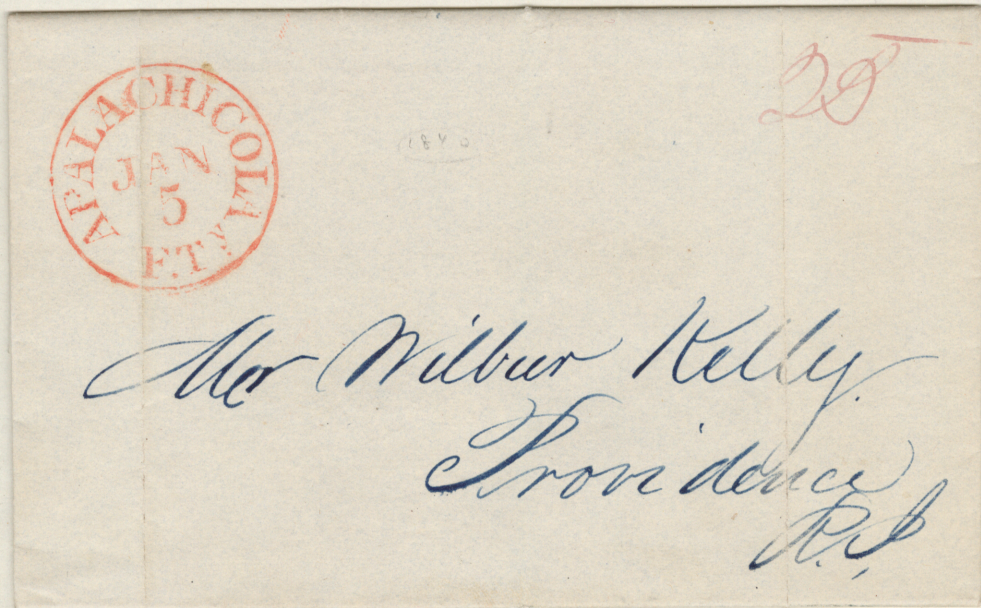 APALACHICOLA
JAN
5
F.Ty
25
1840
Mr Wilbur Kelly.
Providence
R.I,